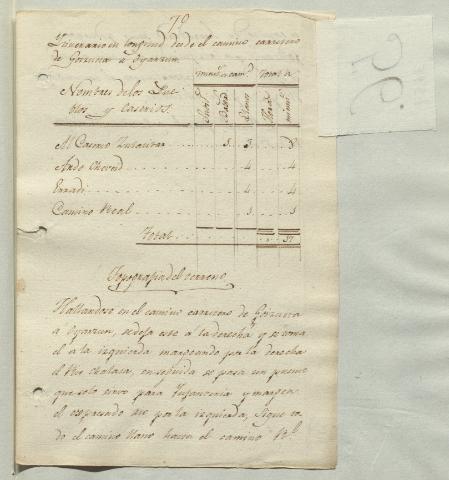 7º
Itinerario en longitud desde el camino carretero
de Gorzuna a Oyarzun
Nombres de los Pue-
blos y Caserios
Total
Al Caserio 5 3 8
Ardo 4 4
Erradi 4 4
Camino Real
Total 37
Topografia del terreno
Hallandose en el camino carretero de
a Oyarzun, se deja este a la derecha y se toma
el a la izquierda margeando por la derecha
el Rio en seguida se pasa un puente
que solo sirve para Infanteria y margea
el expresado rio por la izquierda, sigue to-
do el camino llano hasta el camino Rl